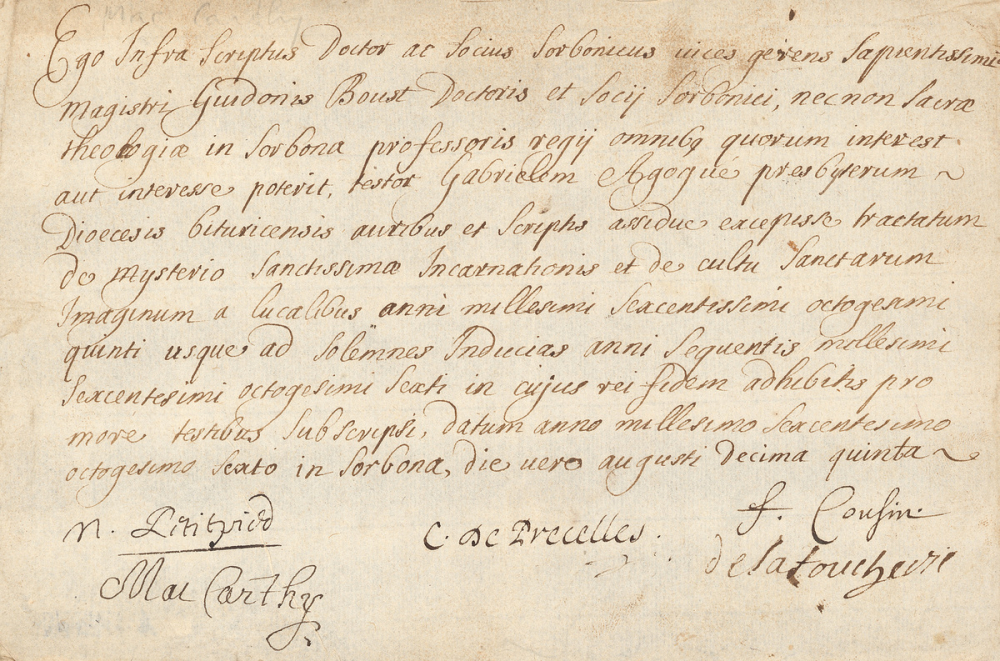 Mac Carthy
Ego Infra Scriptus Doctor ac Socius Sorbonicus vices gerens Sapientissimi
Magistri Guidonis Boust Doctoris et Socij Sorbonici, nec non Sacræ
theologiæ in Sorbona professoris regij omnibꝫ quorum interest
aut interesse poterit, testor Gabrielem Agogué presbyterum ~
Dioecesis bituricensis auribus et Scriptis assidue excepisse tractatum
de Mysterio Sanctissimæ Incarnationis et de cultu Sanctarum
Imaginum a lucalibus anni millesimi Sexcentissimi octogesimi
quinti usque ad Solemnes Inducias anni Sequentis millesimi
Sexcentesimi octogesimi Sexti in cujus rei fidem adhibitis pro
more testibus Subscripsi, datum anno millesimo Sexcentesimo
octogesimo Sexto in Sorbona, die vero augusti Decima quinta ~
N. Petitpied
C. De Precelles.
f. Cousin.
Mac Carthy